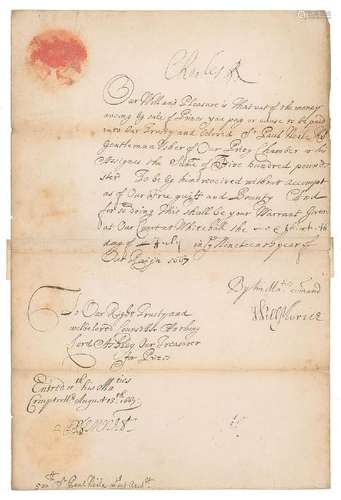 Charles R
Our Will and Pleasure is That out of the money
ariseing by sale of Prizes you pay or cause to be paid
unto Our Trusty and Welbeloved Sr Paul Neile
Gentleman Usher of Our Privy Chamber or his
Assignes the Summe of Five hundred pounds
ster To be by him received without Accompt
as of Our free guift and Bounty And
for so doing This shall be your Warrant Given
at Our Court at Whitehall the
day of July in ye Nineteenth year of
Our Reign 1667
By his Maties Comand
Will Morice
To Our Right Trusty and
welbeloved Councellor Anthony
Lord Ashley Our Treasurer
for Prizes
Entred in his Maties
August
500 Sr Paul Neile